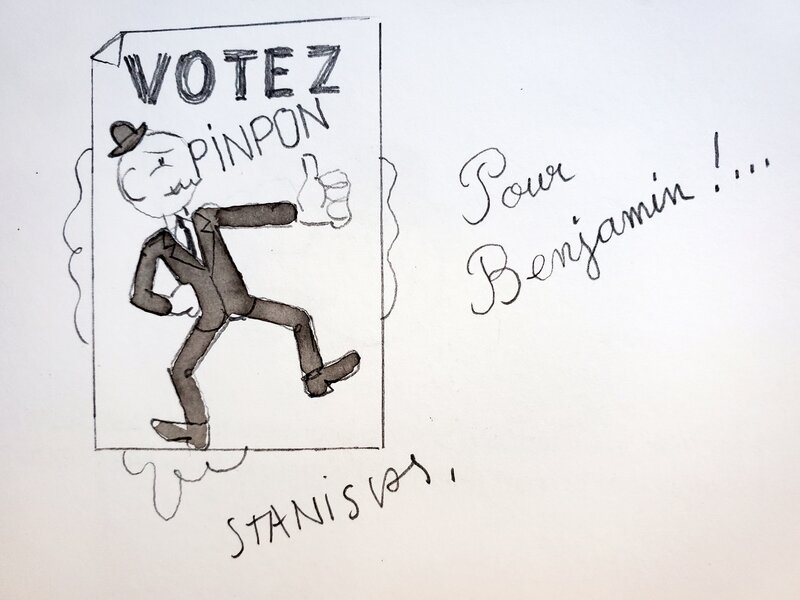 VOTEZ
PINPON
Pour
Benjamin !...
STANISLAS.